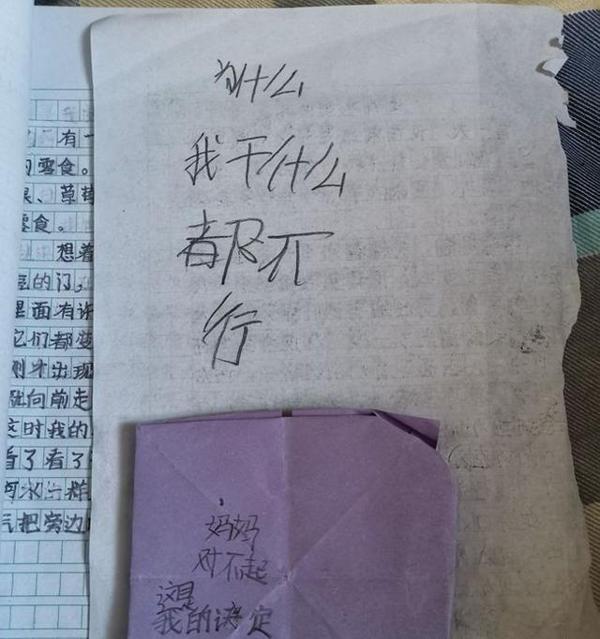 有一
的零食。
、草莓
零食。
想着
的门,
里面有许
它们都变
刚才出现
向前走
这时我的
看了看了
河水
气把旁边
为什么
我干什么
都不
行
妈妈
对不起
这是
我的决定